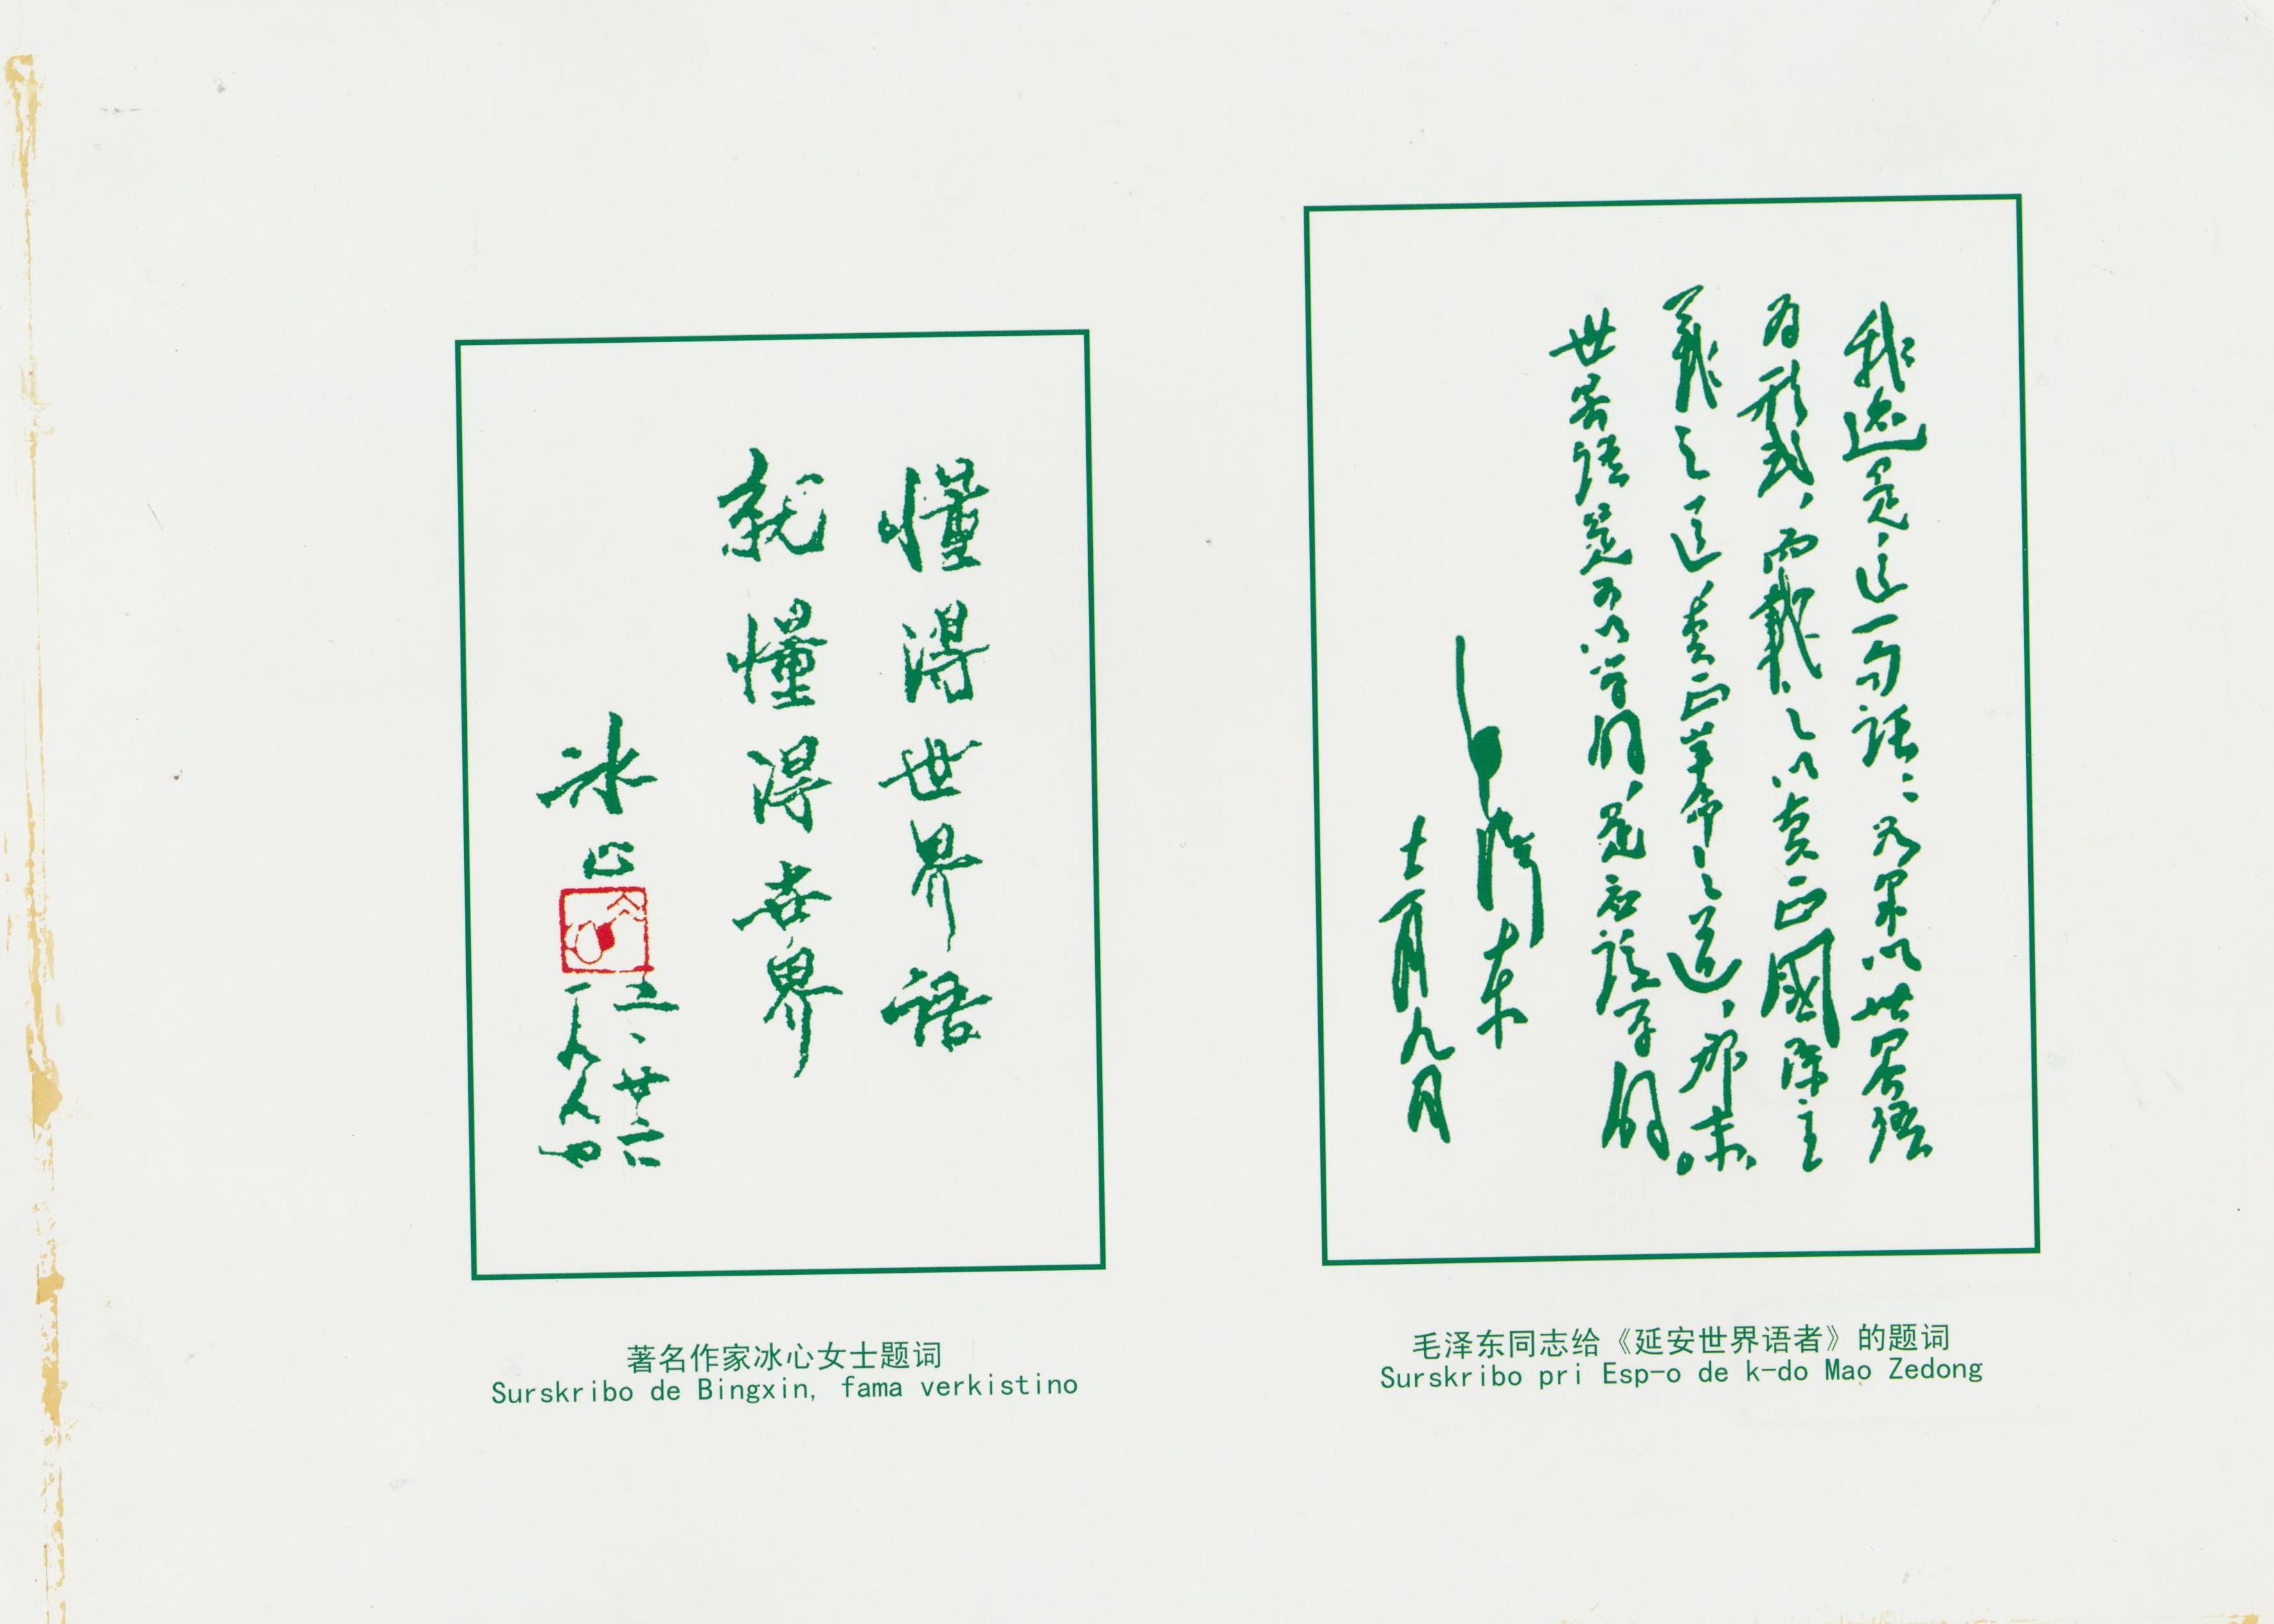 我还是这一句话：如果以世界语
为形式，而载之以真正國际主
義之道，真正革命之道，那末，
世界语是可以学的，是应该学的。
毛泽东
十二月九日
毛泽东同志给《延安世界语者》的题词
Surskribo pri Esp-o de k-do Mao Zedong
懂得世界语
就懂得世界
冰心
一九八四
著名作家冰心女士题词
Surskribo de Bingxin, fama verkistino